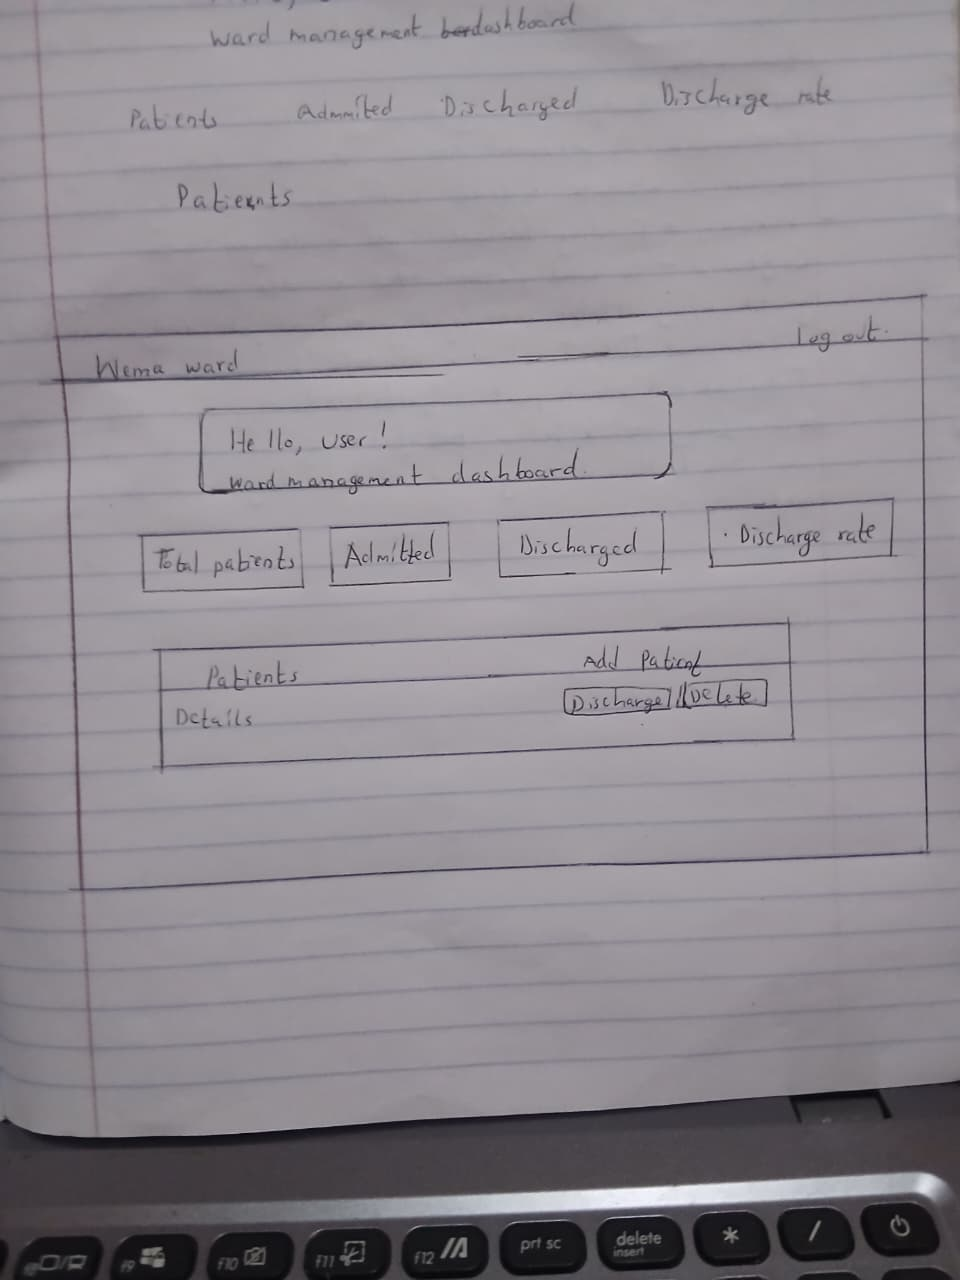 ward management dashboard
Patients Admmited Discharged Discharge rate
Patients
Log out.
Wema ward
Hello, user!
ward management dashboard.
Total patients Admitted Discharged Discharge rate
Patients Add Patient
Details Discharge // Delete
f9 f10 f11 f12 prt sc delete insert * /